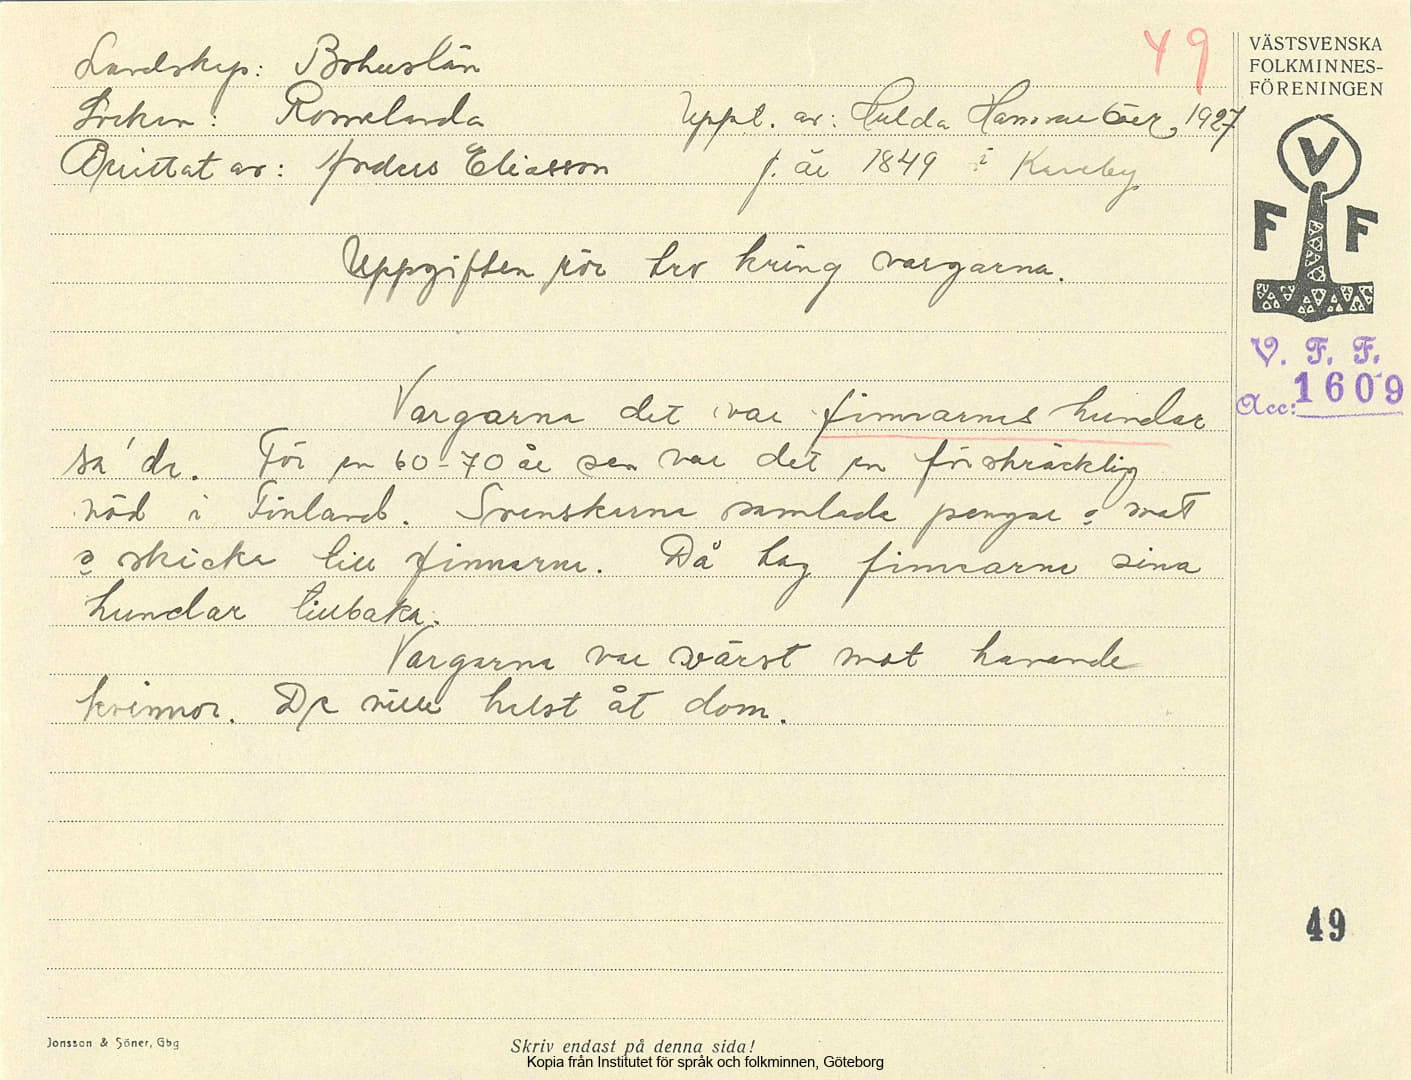 Landskap: Bohuslän
49
VÄSTSVENSKA
FOLKMINNES-
FÖRENINGEN
Socken: Romelanda
Uppt. av: Hulda Hammarbäck, 1927
Berättat av: Anders Eliasson
f. år 1849 i Kareby
V
F F
Uppgiften rör tro kring vargarna.
V. F. F.
Acc: 1609
Vargarna det var finnarnes hundar
sa' de. För en 60-70 år sen var det en förskräcklig
nöd i Finland. Svenskarna samlade pengar o mat
o skicka till finnarna. Då tog finnarna sina
hundar tillbaka.
Vargarna var värst mot havande
kvinnor. De ville helst åt dom.
49
Jonsson & Söner, Gbg
Skriv endast på denna sida!
Kopia från Institutet för språk och folkminnen, Göteborg